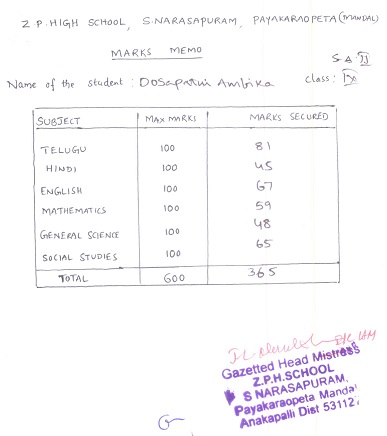 Z.P. HIGH SCHOOL, S.NARASAPURAM, PAYAKARAOPETA (MANDAL)
MARKS MEMO
SA II
Name of the student : Dosaparthi Ambika class: IX
SUBJECT MAX MARKS MARKS SECURED
TELUGU 100 81
HINDI 100 45
ENGLISH 100 67
MATHEMATICS 100 59
GENERAL SCIENCE 100 48
SOCIAL STUDIES 100 65
TOTAL 600 365
Gazetted Head Mistress
Z.P.H.SCHOOL
S NARASAPURAM,
Payakaraopeta Mandal
Anakapalli Dist 53112